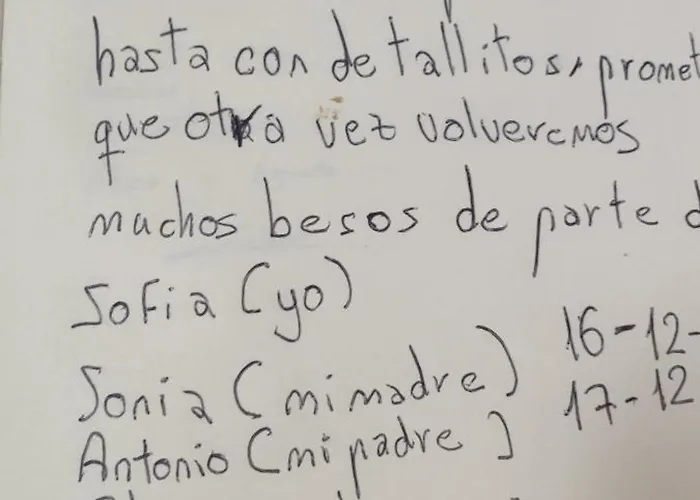 hasta con detallitos, promet
que otra vez volveremos
muchos besos de parte d
Sofia (yo)
Sonia (mi madre) 16-12-
Antonio (mi padre) 17-12